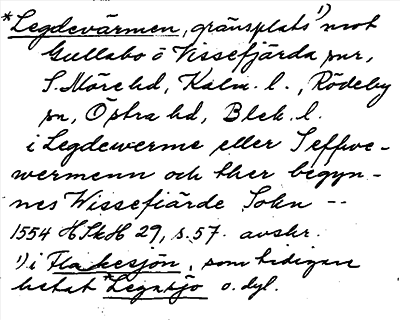 *Legdevärmen, gränsplats ¹) mot
Gullabo ö Vissefjärda snr,
S. Möre hd, Kalm. l., Rödeby
sn, Östra hd, Blek. l.
i Legdewerme eller Seffwe-
wermenn och ther begyn-
nes Wissefiärde Sokn --
1554 HSkH 29, s. 57. avskr.
¹) i Flakesjön, som tidigare
hetat *Legnsjö o. dyl.